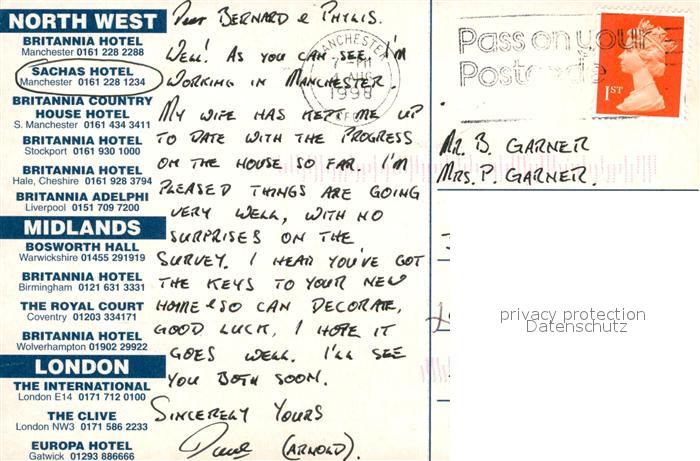 NORTH WEST
BRITANNIA HOTEL
Manchester 0161 228 2288
SACHAS HOTEL
Manchester 0161 228 1234
BRITANNIA COUNTRY
HOUSE HOTEL
S. Manchester 0161 434 3411
BRITANNIA HOTEL
Stockport 0161 930 1000
BRITANNIA HOTEL
Hale, Cheshire 0161 928 3794
BRITANNIA ADELPHI
Liverpool 0151 709 7200
MIDLANDS
BOSWORTH HALL
Warwickshire 01455 291919
BRITANNIA HOTEL
Birmingham 0121 631 3331
THE ROYAL COURT
Coventry 01203 334171
BRITANNIA HOTEL
Wolverhampton 01902 29922
LONDON
THE INTERNATIONAL
London E14 0171 712 0100
THE CLIVE
London NW3 0171 586 2233
EUROPA HOTEL
Gatwick 01293 886666
Dear BERNARD & PHYLIS.
WELL! AS YOU CAN SEE, I'M
WORKING IN MANCHESTER.
MY WIFE HAS KEPT ME UP
TO DATE WITH THE PROGRESS
ON THE HOUSE SO FAR. I'M
PLEASED THINGS ARE GOING
VERY WELL, WITH NO
SURPRISES ON THE
SURVEY. I HEAR YOU'VE GOT
THE KEYS TO YOUR NEW
HOME & SO CAN DECORATE,
GOOD LUCK, I HOPE IT
GOES WELL. I'LL SEE
YOU BOTH SOON.
SINCERELY YOURS
(ARNOLD).
MANCHESTER
1998
Pass on your
Postcode
1ST
MR. B. GARNER
MRS. P. GARNER.
privacy protection
Datenschutz